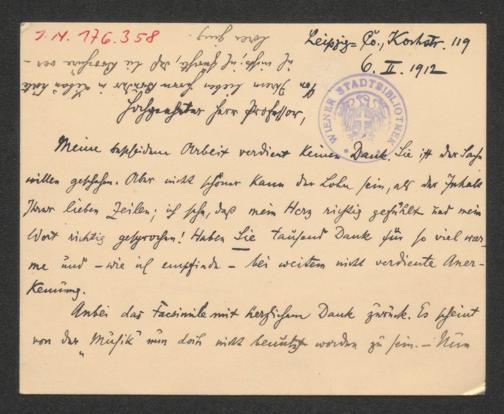 I. N. 176.358
Leipzig-Co., Kochstr. 119
6. II. 1912
WIENER STADTBIBLIOTHEK
Hochgeehrter Herr Professor,
Meine Arbeit verdient keinen Dank. Sie ist der Sache
willen geschehen. Aber nicht schöner kann der Lohn sein, als der Inhalt
Ihrer lieben Zeilen; ich sehe, daß mein Herz richtig gefühlt und mein
Wort richtig gesprochen! Haben Sie tausend Dank für so viel war-
me und – wie ich empfinde – bei weitem nicht verdiente Aner-
kennung.
Anbei das Facsimile mit herzlichem Dank zurück. Es scheint
von der „Musik" nun doch nicht benützt worden zu sein. – Nun